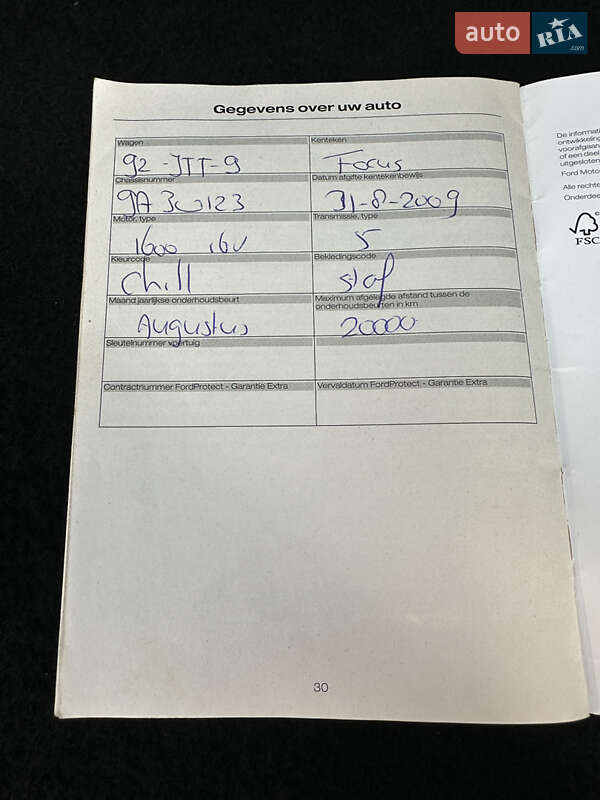 auto RIA .com
Gegevens over uw auto
Wagen Kenteken
92-JTT-9 Focus
Chassisnummer Datum afgifte kentekenbewijs
9A30123 31-8-2009
Motor, type Transmissie, type
1600 16V 5
Kleurcode Bekledingscode
Chill stof
Maand jaarlijkse onderhoudsbeurt Maximum afgelegde afstand tussen de
onderhoudsbeurten in km
Augustus 20000
Sleutelnummer voertuig
Contractnummer FordProtect - Garantie Extra Vervaldatum FordProtect - Garantie Extra
30
De informati
ontwikkeling
voorafgaan
of een deel
uitgesloten
Ford Moto
Alle rechte
Onderdee
FSC